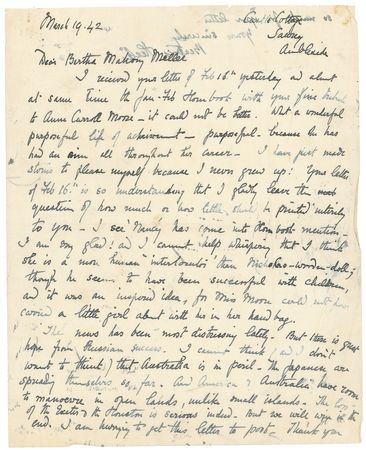 March 19. 42
Castle Cottage
Sawrey
Ambleside
Dear Bertha Mahony Miller
I received your letter of Feb 16th yesterday and about
at same time the Jan-Feb Hornbook with your fine tribute
to Anne Carroll Moore – it could not be better. What a wonderful
purposeful life of achievement – purposeful – because she has
had an aim all throughout her career – I have just made
stories to please myself because I never grew up! Your letter
of Feb 16th is so understanding that I gladly leave the
question of how much – or how little should be printed entirely
to you – I see Nancy has come into Hornbook mention –
I am very glad! and I cannot help whispering that I think
she is a more human "interlocutor" than Nicholas – wooden-doll;
though he seems to have been successful with children,
and it was an inspired idea, for Miss Moore could not have
carried a little girl about with her in her hand bag.
The news has been most distressing lately. But there is great
hope from Russian success. I cannot think (and I don't
want to think) that Australia is in peril – the Japanese are
spreading themselves so far. And America & Australia have room
to manoeuvre in open lands, unlike small islands – The loss
of the Exeter & the Houston is serious indeed. But we will win in the
end. I am hurrying to get this letter to post – Thank you